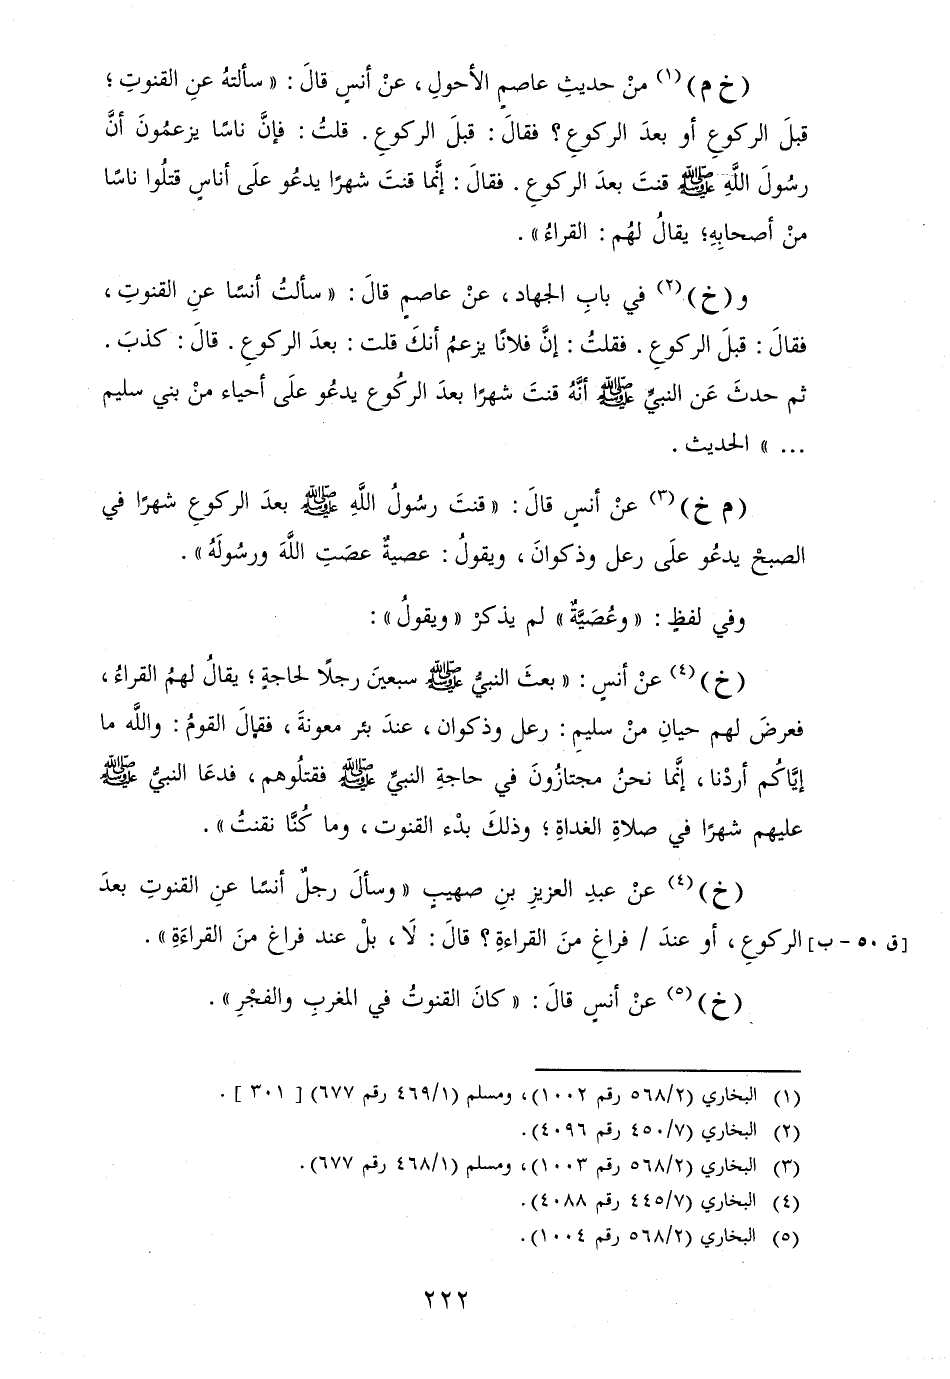 (خ م)(١) منْ حديثِ عاصمٍ الأحولِ، عنْ أنسٍ قالَ: «سألتهُ عنِ القنوتِ؛
قبلَ الركوعِ أو بعدَ الركوعِ؟ فقالَ: قبلَ الركوعِ. قلتُ: فإنَّ ناسًا يزعمُونَ أنَّ
رسُولَ اللَّهِ ﷺ قنتَ بعدَ الركوعِ. فقالَ: إنَّما قنتَ شهرًا يدعُو علَى أناسٍ قتلُوا ناسًا
منْ أصحابِهِ؛ يقالُ لهُم: القراءُ».
و(خ)(٢) في بابِ الجهاد، عنْ عاصمٍ قالَ: «سألتُ أنسًا عنِ القنوتِ،
فقالَ: قبلَ الركوعِ. فقلتُ: إنَّ فلانًا يزعمُ أنكَ قلت: بعدَ الركوعِ. قالَ: كذبَ.
ثم حدثَ عَن النبيِّ ﷺ أنَّهُ قنتَ شهرًا بعدَ الركُوع يدعُو علَى أحياء منْ بني سليم
...» الحديث.
(م خ)(٣) عنْ أنسٍ قالَ: «قنتَ رسُولُ اللَّهِ ﷺ بعدَ الركوعِ شهرًا في
الصبحْ يدعُو علَى رعل وذكوانَ، ويقولُ: عصيةٌ عصَتِ اللَّهَ ورسُولَهُ».
وفي لفظٍ: «وعُصَيَّةٌ» لم يذكرْ «ويقولُ»:
(خ)(٤) عنْ أنسٍ: «بعثَ النبيُّ ﷺ سبعينَ رجلًا لحاجةٍ؛ يقالُ لهمُ القراءُ،
فعرضَ لهم حيانِ منْ سليمٍ: رعل وذكوان، عندَ بئر معونةَ، فقالَ القومُ: واللَّه ما
إيَّاكُم أردْنا، إنَّما نحنُ مجتازُونَ في حاجةِ النبيِّ ﷺ فقتلُوهم، فدعَا النبيُّ ﷺ
عليهم شهرًا في صلاةِ الغداةِ؛ وذلكَ بدْء القنوت، وما كُنَّا نقنتُ».
(خ)(٤) عنْ عبدِ العزيزِ بنِ صهيبٍ «وسألَ رجلٌ أنسًا عنِ القنوتِ بعدَ
[ق ٥٠ - ب] الركوعِ، أو عندَ / فراغٍ منَ القراءةِ؟ قالَ: لَا، بلْ عند فراغ منَ القراءَةِ».
(خ)(٥) عنْ أنسٍ قالَ: «كانَ القنوتُ في المغربِ والفجْرِ».
(١) البخاري (٥٦٨/٢ رقم ١٠٠٢)، ومسلم (٤٦٩/١ رقم ٦٧٧) [٣٠١].
(٢) البخاري (٤٥٠/٧ رقم ٤٠٩٦).
(٣) البخاري (٥٦٨/٢ رقم ١٠٠٣)، ومسلم (٤٦٨/١ رقم ٦٧٧).
(٤) البخاري (٤٤٥/٧ رقم ٤٠٨٨).
(٥) البخاري (٥٦٨/٢ رقم ١٠٠٤).
٢٢٢